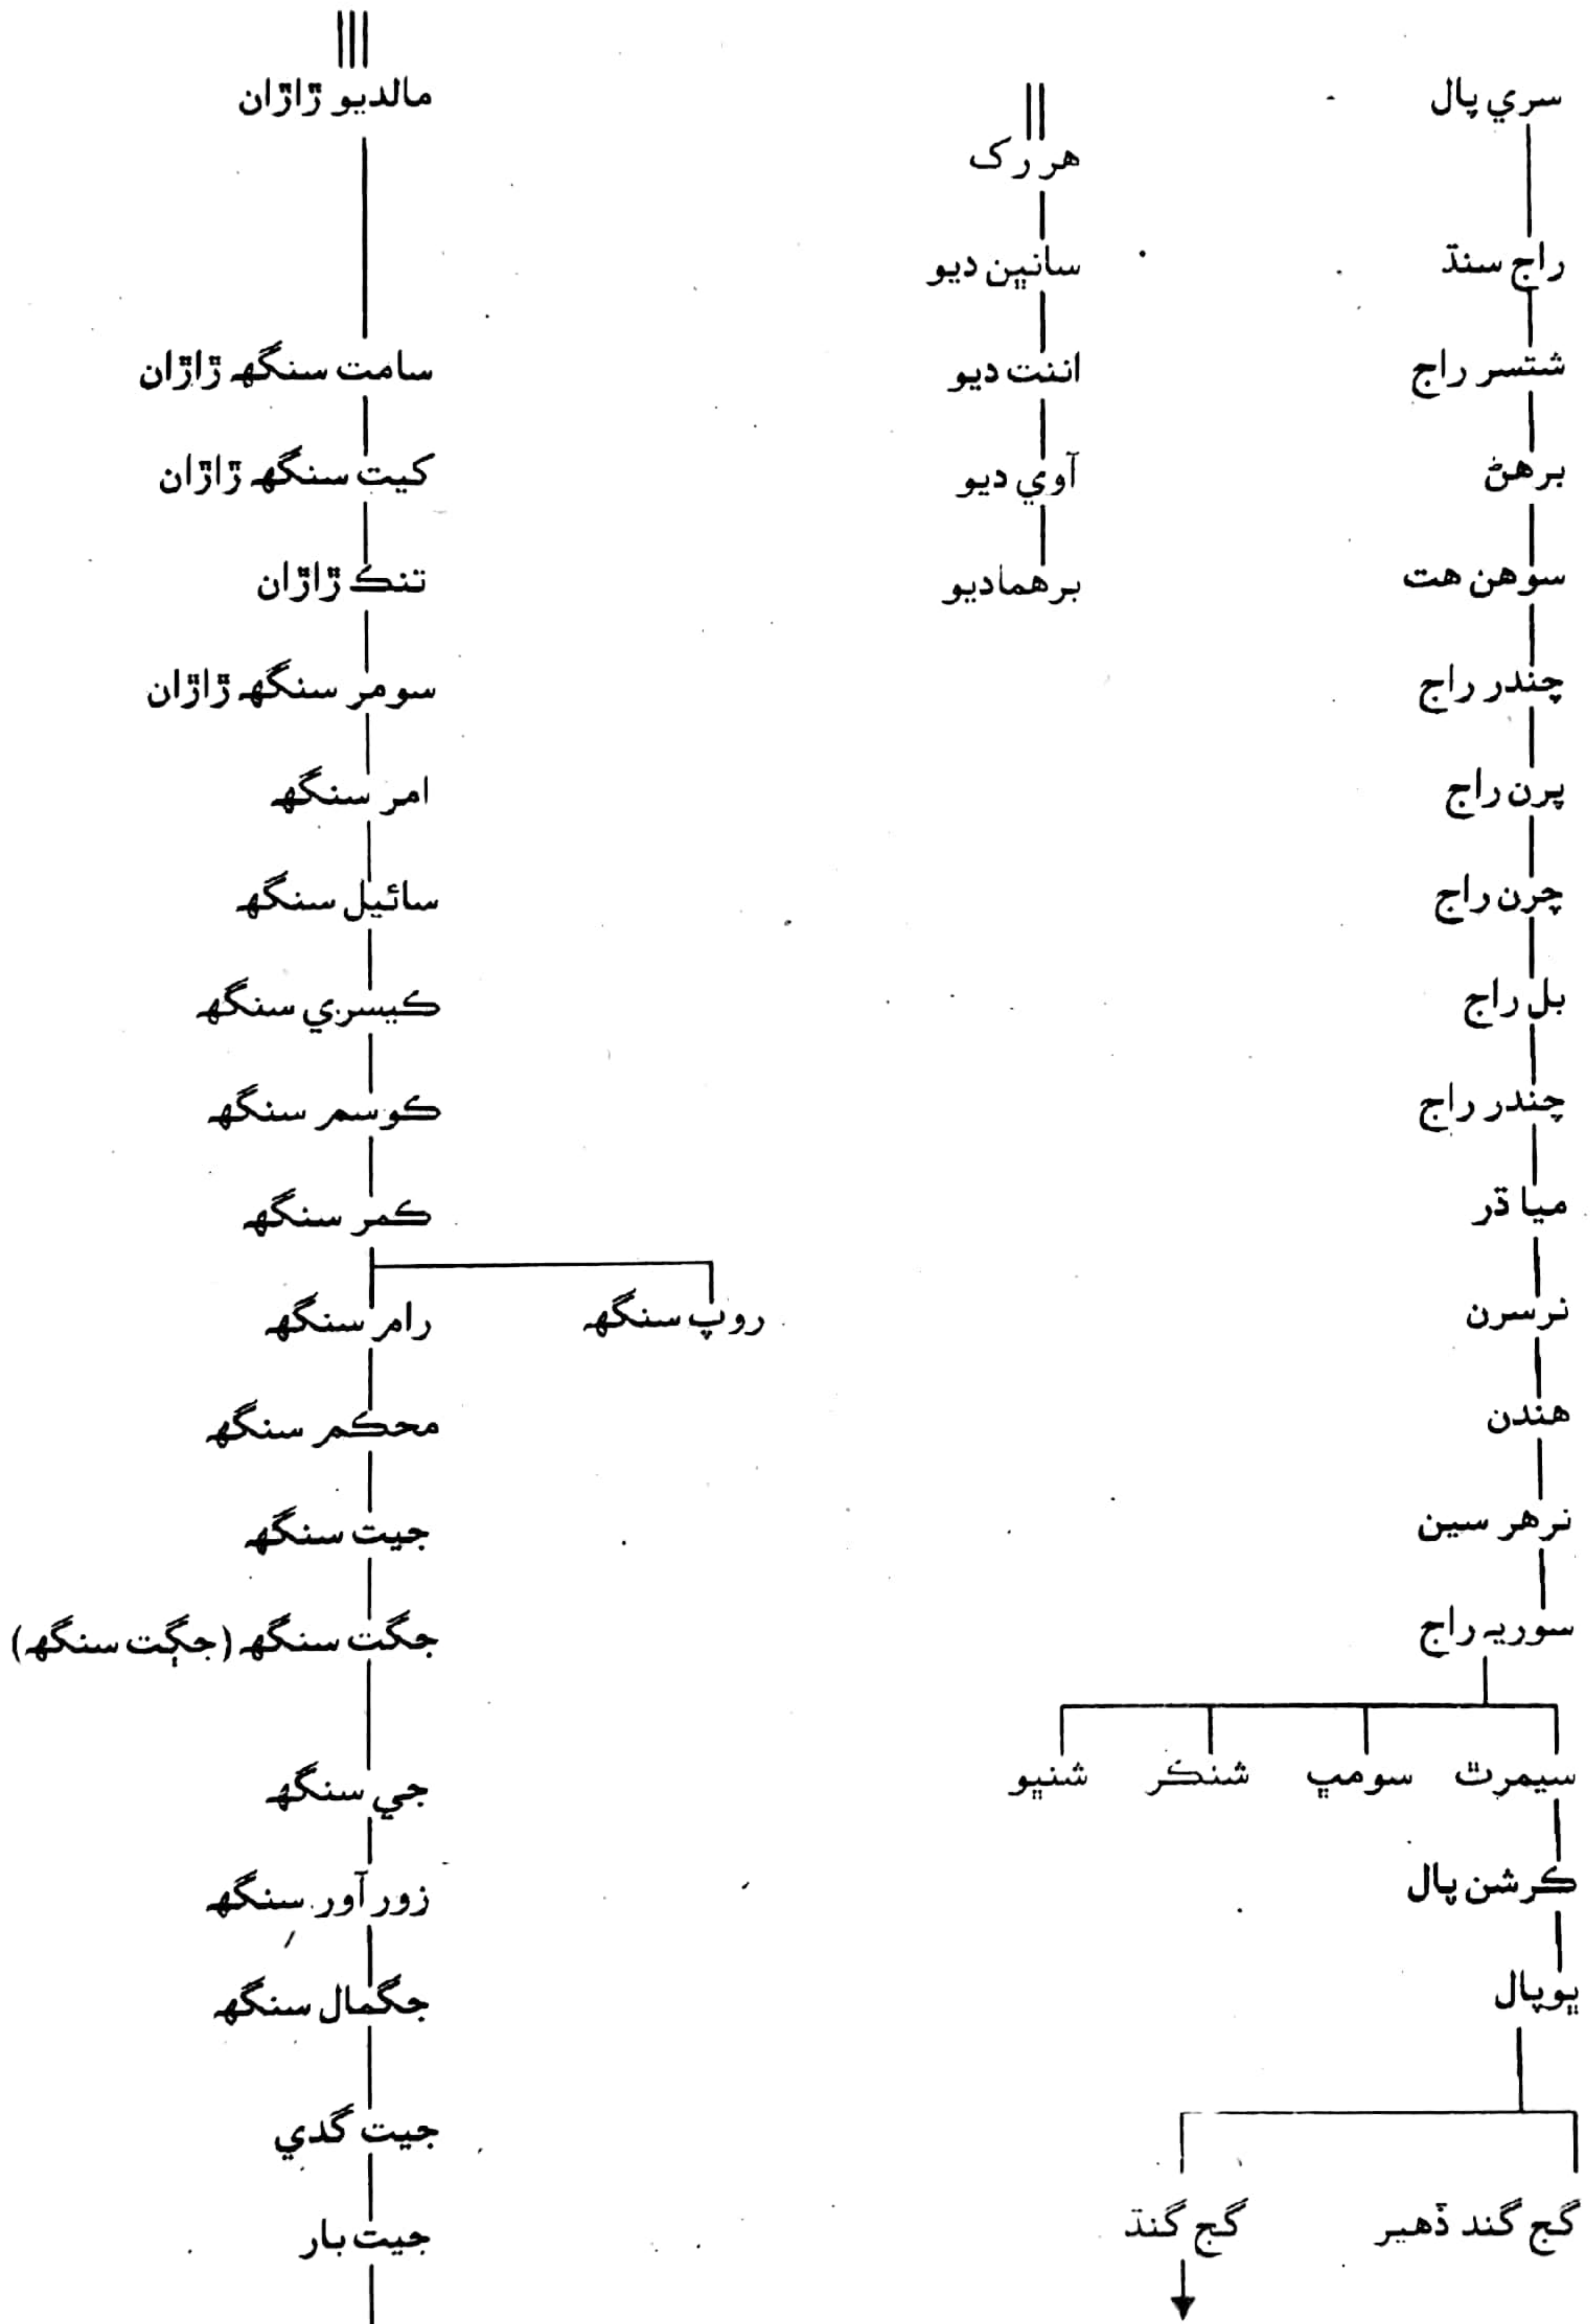 سري پال
راج سنڌ
شتسر راج
برهڻ
سوهن هت
چندر راج
پرن راج
چرن راج
بل راج
چندر راج
ميا ڌر
نرسرن
هندن
نرهر سين
سوريہ راج
سيمرٿ سومپ شنڪر شنڀو
ڪرشن پال
ڀوپال
گج گند ڌهير گج گنڌ
هر رک
سانڀن ديو
اننت ديو
آوي ديو
برهماديو
مالديو ڙاڙان
سامت سنگهہ ڙاڙان
کيت سنگهہ ڙاڙان
تنڪ ڙاڙان
سومر سنگهہ ڙاڙان
امر سنگهہ
سائيل سنگهہ
ڪيسري سنگهہ
ڪوسم سنگهہ
ڪمر سنگهہ
روپ سنگهہ رام سنگهہ
محڪم سنگهہ
جيت سنگهہ
جگت سنگهہ (جڳت سنگهہ)
جي سنگهہ
زور آور سنگهہ
جگمال سنگهہ
جيت گدي
جيت بار